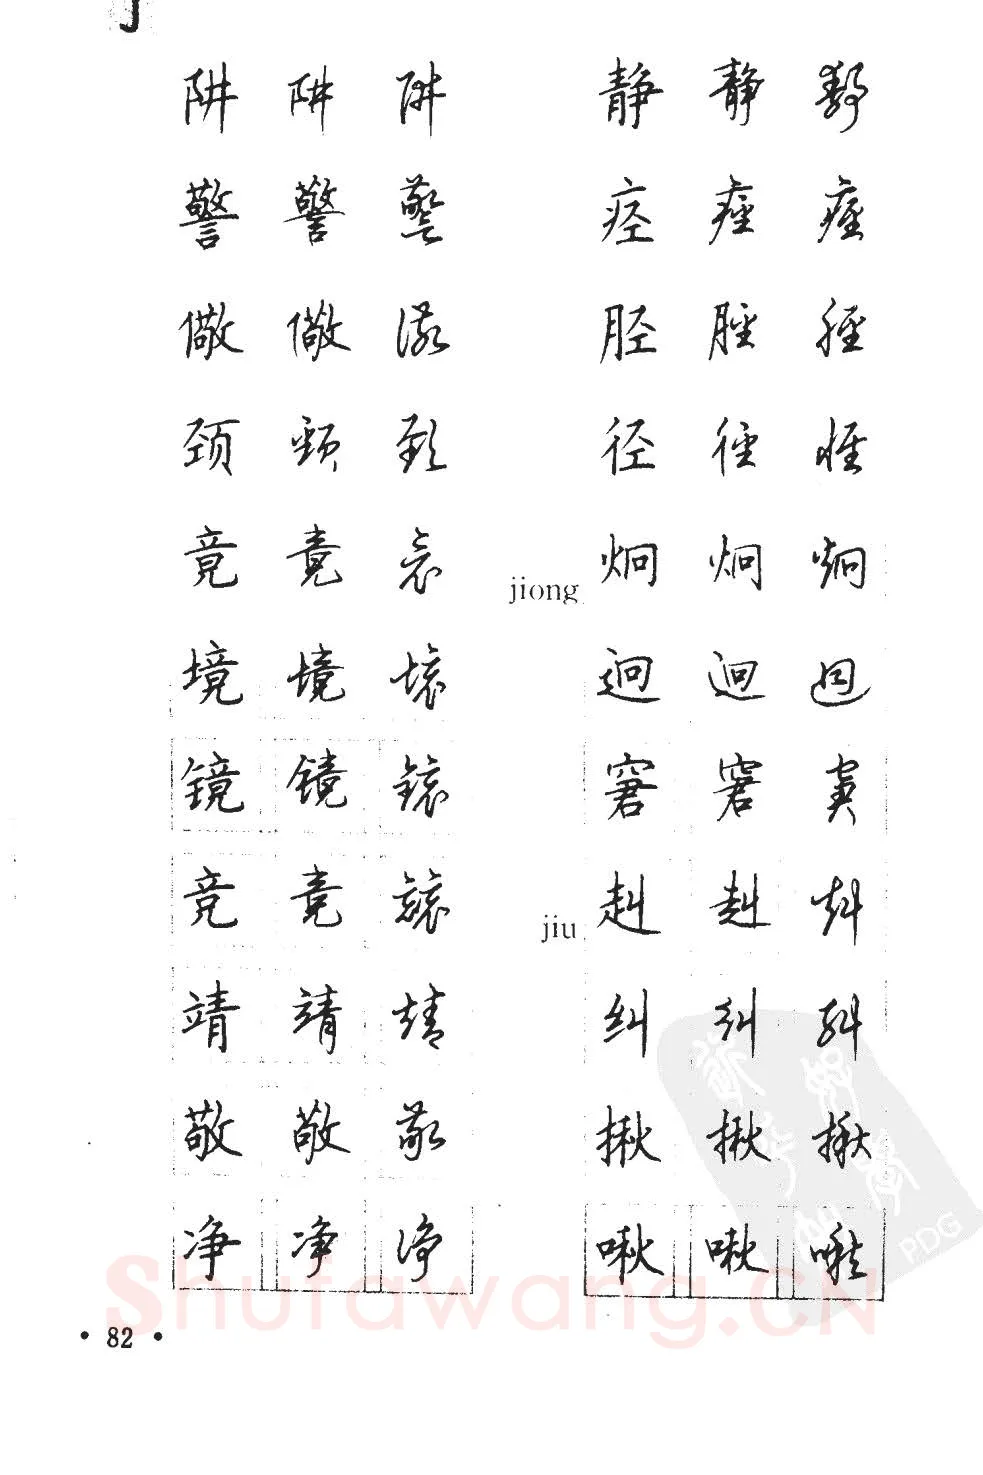 阱 阱 阱
警 警 警
儆 儆 儆
颈 颈 颈
竟 竟 竟
境 境 境
镜 镜 鏡
竞 竞 競
靖 靖 靖
敬 敬 敬
净 净 净
静 静 静
痉 痙 痙
胫 脛 脛
径 徑 徑
jiong 炯 炯 炯
迥 迥 迥
窘 窘 窘
jiu 赳 赳 赳
纠 纠 糾
揪 揪 揪
啾 啾 啾
PDG
Shufawang.CN
• 82 •